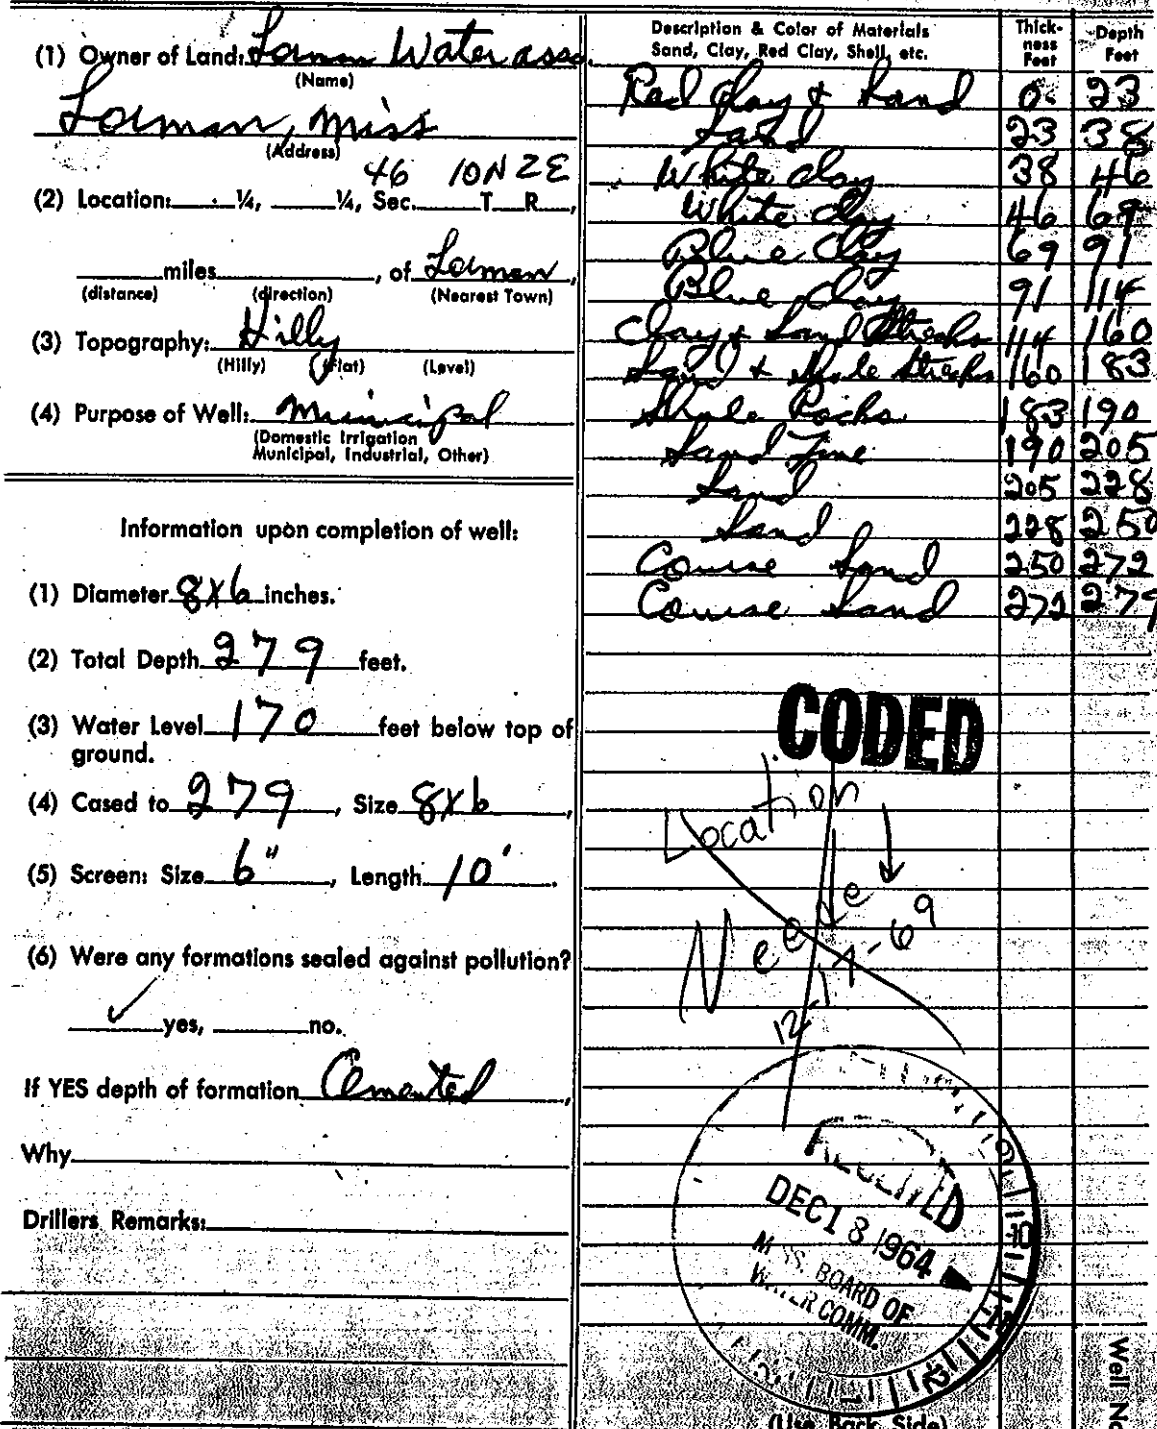 (1) Owner of Land: Water asso.
(Name)
Lorman, Miss
(Address)
46 10N 2E
(2) Location: ¼, ¼, Sec. T R ,
miles , of Lorman ,
(distance) (direction) (Nearest Town)
(3) Topography: Hilly
(Hilly) (Flat) (Level)
(4) Purpose of Well: Municipal
(Domestic Irrigation
Municipal, Industrial, Other)
Information upon completion of well:
(1) Diameter 8x6 inches.
(2) Total Depth 279 feet.
(3) Water Level 170 feet below top of
ground.
(4) Cased to 279 , Size 8x6 ,
(5) Screen: Size 6" , Length 10' .
(6) Were any formations sealed against pollution?
✓ yes, no.
If YES depth of formation Cemented ,
Why
Drillers Remarks:
Description & Color of Materials
Sand, Clay, Red Clay, Shell, etc.
Thick-
ness
Feet
Depth
Feet
Red Clay & Sand 0 23
Sand 23 38
White Clay 38 46
White Clay 46 69
Blue Clay 69 91
Blue Clay 91 114
Clay & Sand Streaks 114 160
Sand & Shale Streaks 160 183
Shale Rocks 183 190
Sand Fine 190 205
Sand 205 228
Sand 228 250
Course Sand 250 272
Course Sand 272 279
CODED
Location
Needed
12-17-69
RECEIVED
DEC 18 1964
MISS. BOARD OF
WATER COMM.
(Use Back Side)
Well No